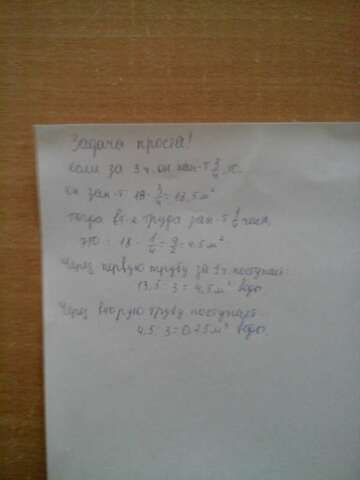 Задача проста!
Если за 3 ч. он нап-т 3/4, то
он зап-т 18 · 3/4 = 13,5 м³
тогда вт-я труба зап-т 1/4 часть,
это 18 · 1/4 = 9/2 = 4,5 м³
Через первую трубу за 1 ч. поступает:
13,5 : 3 = 4,5 м³ воды
Через вторую трубу поступает
4,5 : 3 = 0,25 м³ воды